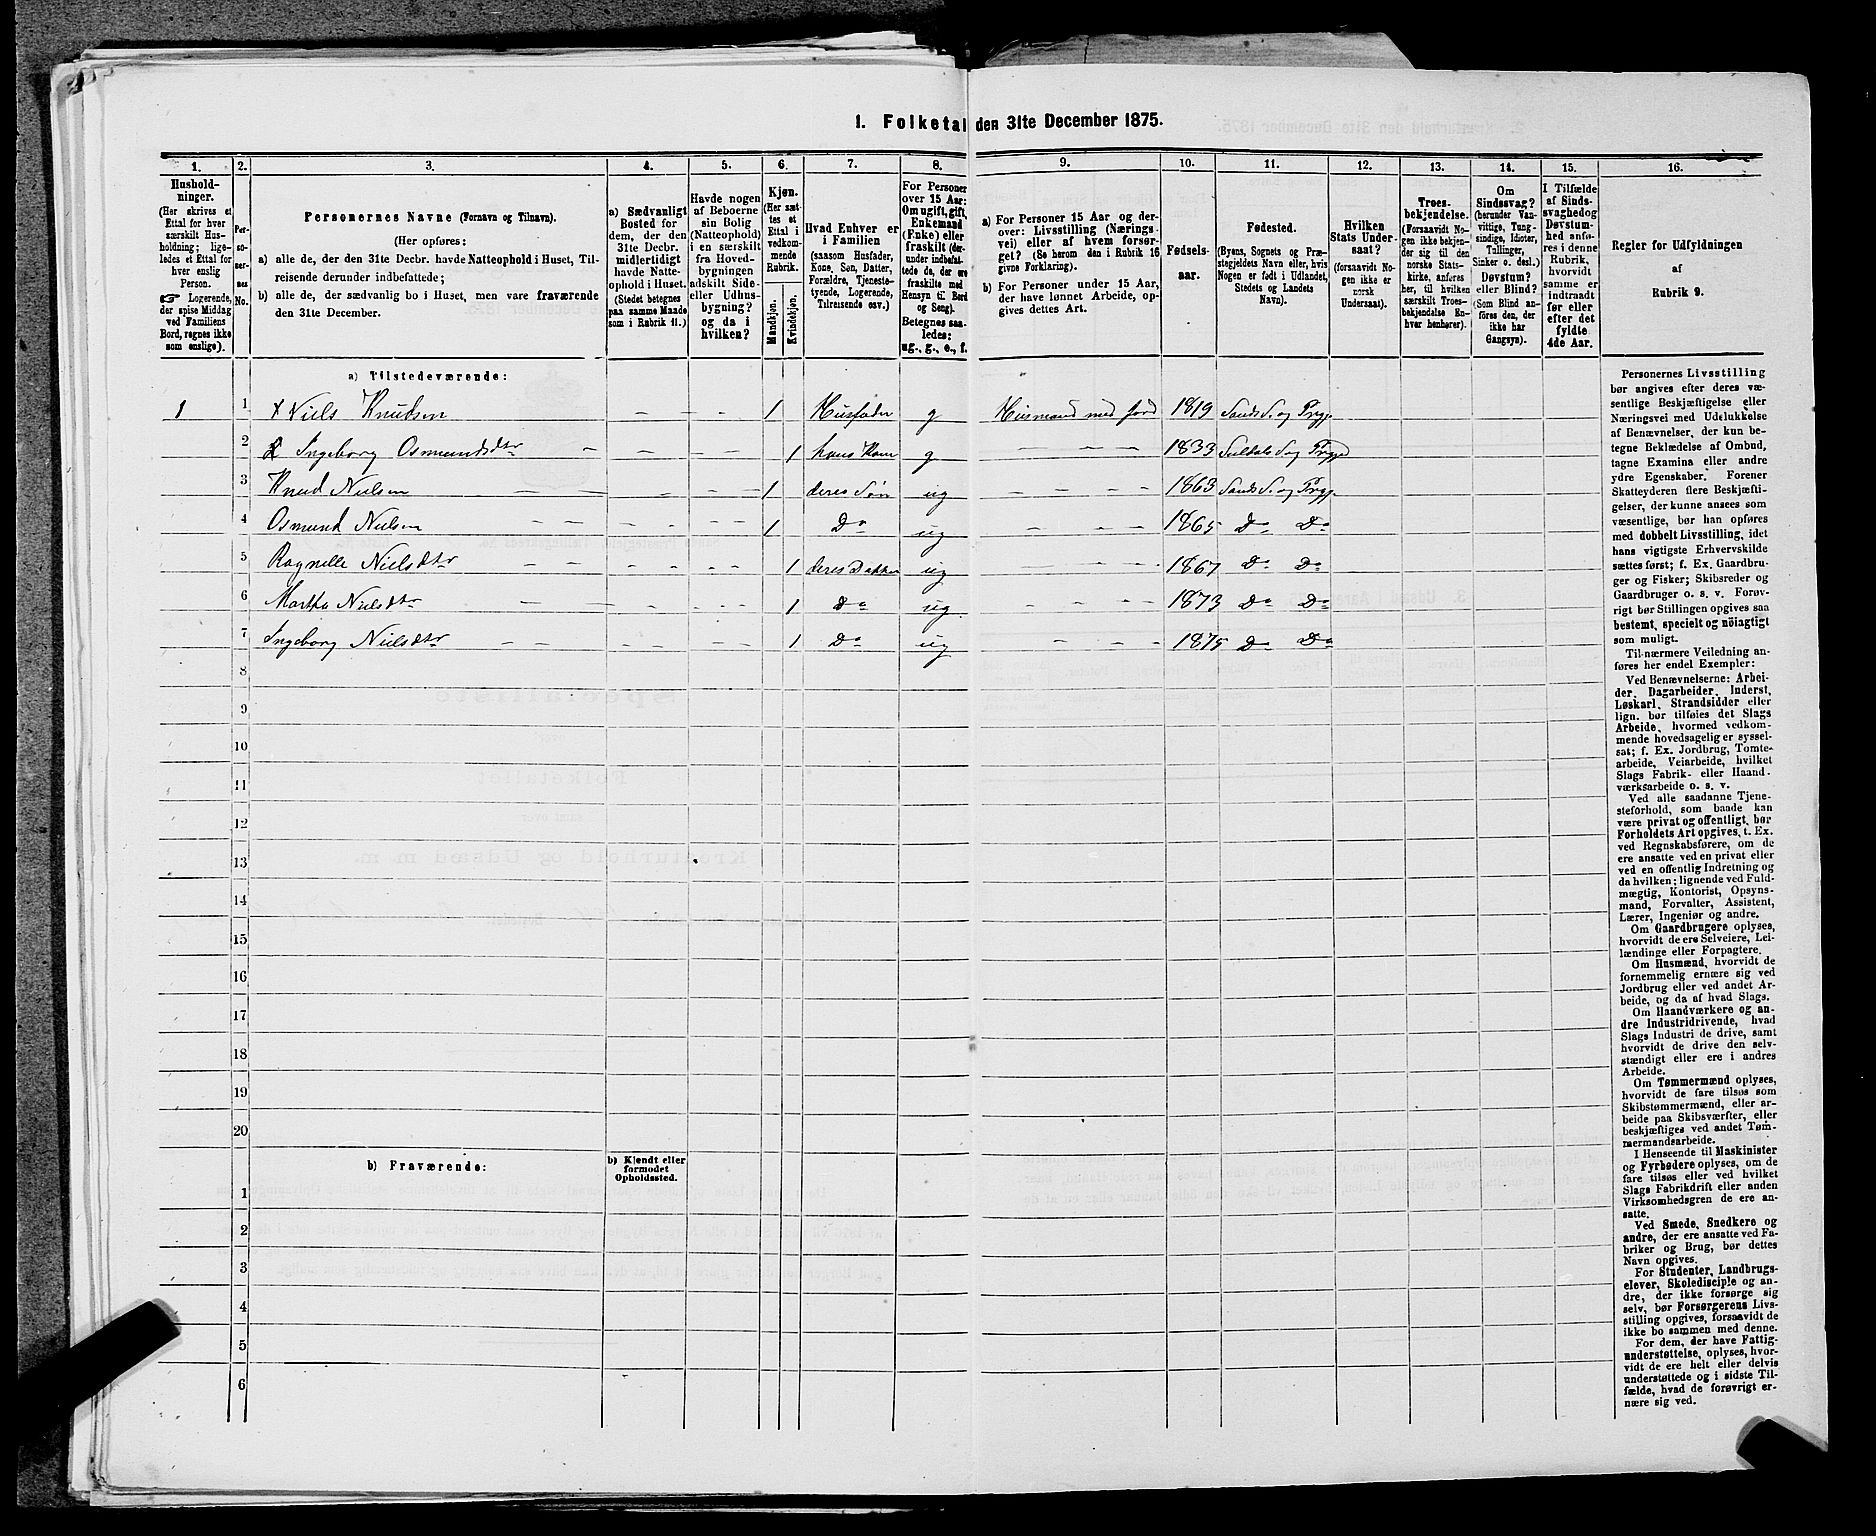 1. Folketal den 31te December 1875.
1. 2. 3. 4. 5. 6. 7. 8. 9. 10. 11. 12. 13. 14. 15. 16.
Husholdninger.
(Her skrives et
Ettal for hver
særskilt Husholdning;
ligeledes et Ettal for
hver enslig
Person.
☞ Logerende,
der spise Middag
ved Familiens
Bord, regnes ikke
som enslige).
Personernes No.
Personernes Navne (Fornavn og Tilnavn).
(Her opføres:
a) alle de, der den 31te Decbr. havde Natteophold i Huset, Tilreisende derunder indbefattede;
b) alle de, der sædvanlig bo i Huset, men vare fraværende
den 31te December.
a) Sædvanligt
Bosted for
dem, der den
31te Decbr.
midlertidigt
havde Natteophold
i Huset.
(Stedet betegnes
paa samme Maade
som i Rubrik 11.)
Havde nogen
af Beboerne
sin Bolig
(Natteophold)
i en særskilt
fra Hovedbygningen
adskilt Side-
eller Udhusbygning?
og da i
hvilken?
Kjøn.
(Her sættes
et
Ettal i
vedkommende
Rubrik.
Mandkjøn.
Kvindekjøn.
Hvad Enhver er
i Familien
(saasom Husfader,
Kone, Søn, Datter,
Forældre, Tjenestetyende,
Logerende,
Tilreisende osv.)
For Personer
over 15 Aar:
Om ugift, gift,
Enkemand
(Enke) eller
fraskilt (derunder indbefattede
de, der ere
fraskilte med
Hensyn til Bord
og Seng).
Betegnes saaledes:
ug., g., e., f.
a) For Personer 15 Aar og derover:
Livsstilling (Næringsvei)
eller af hvem forsørget?
(Se herom den i Rubrik 16
givne Forklaring).
b) For Personer under 15 Aar,
der have lønnet Arbeide, opgives
dettes Art.
Fødselsaar.
Fødested.
(Byens, Sognets og Præstegjeldets
Navn eller, hvis
Nogen er født i Udlandet,
Stedets og Landets
Navn).
Hvilken
Stats Undersaat?
(forsaavidt Nogen
ikke er
norsk
Undersaat).
Troesbekjendelse.
(Forsaavidt Nogen
ikke bekjender
sig til den
norske Statskirke,
anføres
her, til hvilken
særskilt Troesbekjendelse
Enhver
henhører).
Om
Sindssvag?
(herunder Vanvittige,
Tungsindige,
Idioter,
Tullinger,
Sinker o. desl.)
Døvstum?
eller Blind?
(Som Blind anføres
den, der
ikke har
Gangsyn).
I Tilfælde
af Sindssvaghed
og
Døvstumhed
anføres
i denne
Rubrik,
hvorvidt
samme er
indtraadt
før eller
efter det
fyldte
4de Aar.
Regler for Udfyldningen
af
Rubrik 9.
a) Tilstedeværende:
1 1 Niels Knudsen – – – 1 Husfader g Husmand med Jord 1819 Sands S. og Prgj.
2 Ingeborg Osmundsdtr – – – – 1 hans Kone g – – – 1833 Suldals S. og Prgjd
3 Knud Nielsen – – 1 deres Søn ug – – – 1863 Sands S. og Prgj.
4 Osmund Nielsen – – – – – 1 Do ug – – – 1865 Do Do
5 Ragnelle Nielsdtr – – – – – 1 deres Datter ug – – – 1867 Do Do
6 Martha Nielsdtr – – – – – 1 Do ug – – – 1873 Do Do
7 Ingeborg Nielsdtr – – – – – 1 Do ug – – – 1875 Do Do
8
9
10
11
12
13
14
15
16
17
18
19
20
b) Fraværende:
b) Kjendt eller
formodet
Opholdssted.
1
2
3
4
5
6
Personernes Livsstilling
bør angives efter deres væsentlige
Beskjæftigelse eller
Næringsvei med Udelukkelse
af Benævnelser, der kun betegne
Beklædelse af Ombud,
tagne Examina eller andre
ydre Egenskaber. Forener
Skatteyderen flere Beskjæftigelser,
der kunne ansees som
væsentlige, bør han opføres
med dobbelt Livsstilling, idet
hans vigtigste Erhvervskilde
sættes først; f. Ex. Gaardbruger
og Fisker; Skibsreder og
Gaardbruger o. s. v. Forøvrigt
bør Stillingen opgives saa
bestemt, specielt og nöiagtigt
som muligt.
Til nærmere Veiledning anføres
her endel Exempler:
Ved Benævnelserne: Arbeider,
Dagarbeider, Inderst,
Løskarl, Strandsidder eller
lign. bør tilføies det Slags
Arbeide, hvormed vedkommende
hovedsagelig er sysselsat;
f. Ex. Jordbrug, Tomtearbeide,
Veiarbeide, hvilket
Slags Fabrik- eller Haandværksarbeide
o. s. v.
Ved alle saadanne Tjenesteforhold,
som baade kan
være privat og offentligt, bør
Forholdets Art opgives, t. Ex.
ved Regnskabsførere, om de
ere ansatte ved en privat eller
ved en offentlig Indretning og
da hvilken; lignende ved Fuldmægtig,
Kontorist, Opsynsmand,
Forvalter, Assistent,
Lærer, Ingeniør og andre.
Om Gaardbrugere oplyses,
hvorvidt de ere Selveiere, Leilændinge
eller Forpagtere.
Om Husmænd, hvorvidt de
fornemmelig ernære sig ved
Jordbrug eller ved andet Arbeide,
og da af hvad Slags.
Om Haandværkere og andre
Industridrivende, hvad
Slags Industri de drive, samt
hvorvidt de drive den selvstændigt
eller ere i andres
Arbeide.
Om Tømmermænd oplyses,
hvorvidt de fare tilsøs som
Skibstømmermænd, eller arbeide
paa Skibsværfter, eller
beskjæftiges ved andet Tømmermandsarbeide.
I Henseende til Maskinister
og Fyrbødere oplyses, om de
fare tilsøs eller ved hvilket
Slags Fabrikdrift eller anden
Virksomhedsgren de ere ansatte.
Ved Smede, Snedkere og
andre, der ere ansatte ved Fabriker
og Brug, bør dettes
Navn opgives.
For Studenter, Landbrugselever,
Skoledisciple og andre,
der ikke forsørge sig
selv, bør Forsørgerens Livsstilling
opgives, forsaavidt de
ikke bo sammen med denne.
For dem, der have Fattigunderstøttelse,
oplyses, hvorvidt
de ere helt eller delvis
understøttede og i sidste Tilfælde,
hvad de forøvrigt ernære
sig ved.